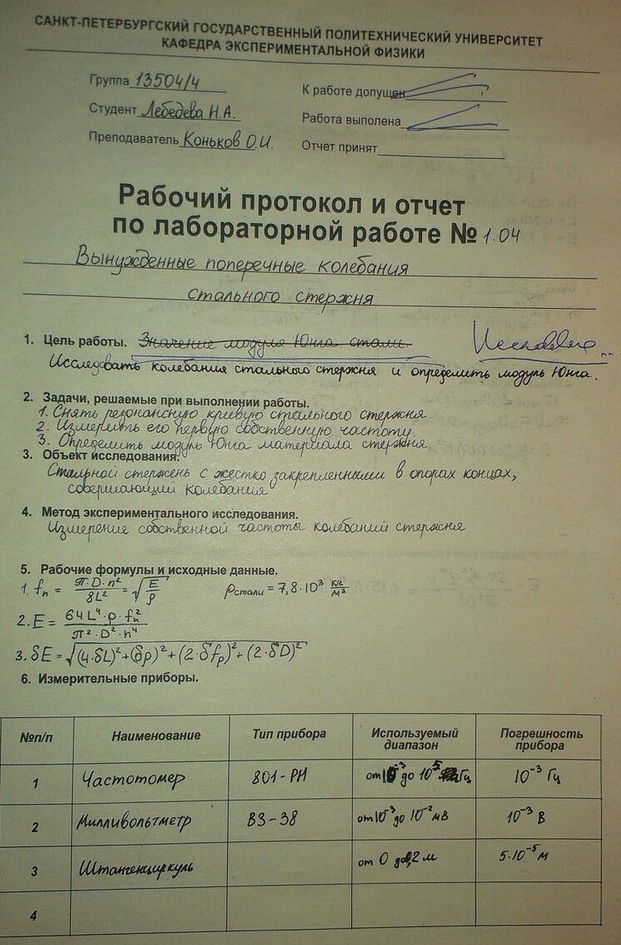 САНКТ-ПЕТЕРБУРГСКИЙ ГОСУДАРСТВЕННЫЙ ПОЛИТЕХНИЧЕСКИЙ УНИВЕРСИТЕТ
КАФЕДРА ЭКСПЕРИМЕНТАЛЬНОЙ ФИЗИКИ
Группа 13504/4
К работе допущен
Студент Лебедева Н.А.
Работа выполена
Преподаватель Коньков О.И.
Отчет принят
Рабочий протокол и отчет
по лабораторной работе № 1.04
Вынужденные поперечные колебания
стального стержня
1. Цель работы. Значение модуля Юнга стали.
Исследовать колебания стального стержня и определить модуль Юнга.
2. Задачи, решаемые при выполнении работы.
1. Снять резонансную кривую стального стержня
2. Измерить его первую собственную частоту
3. Определить модуль Юнга материала стержня
3. Объект исследования.
Стальной стержень с жестко закрепленными в опорах концах,
совершающий колебания
4. Метод экспериментального исследования.
Измерение собственной частоты колебаний стержня
5. Рабочие формулы и исходные данные.
1. fₙ = π·D·n²/8L² = √(E/ρ) ρстали = 7,8·10³ кг/м³
2. E = 64L⁴·ρ·fₙ²/π²·D²·n⁴
3. δE = √((4·δL)²+(δρ)²+(2·δfρ)²+(2·δD)²)
6. Измерительные приборы.
№п/п Наименование Тип прибора Используемый диапазон Погрешность прибора
1 Частотомер 801-РН от 10⁻³ до 10⁵ Гц 10⁻³ Гц
2 Милливольтметр В3-38 от 10⁻³ до 10⁻² мВ 10⁻³ В
3 Штангенциркуль от 0 до 0,2 м 5·10⁻⁵ м
4